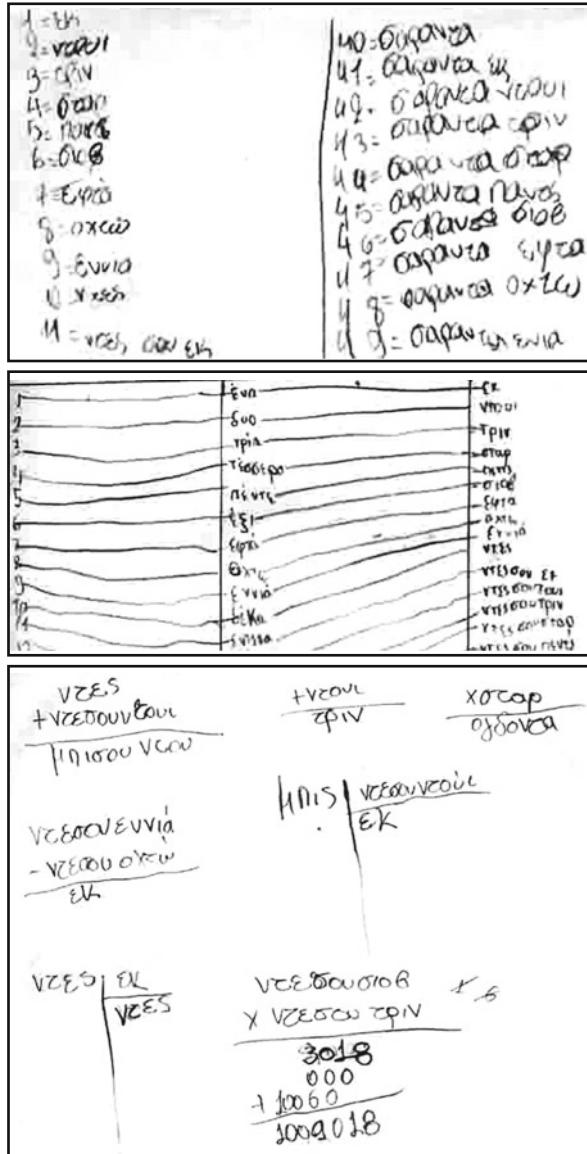 1 = εκ
2 = ντουι
3 = τριν
4 = σταρ
5 = παντς
6 = σιοβ
7 = εφτά
8 = οχτώ
9 = έννιά
10 ντες
11 = ντες σου εκ
40 = σαράντα
41 = σαραντα εκ
42. σαραντα ντουι
43 = σαραντα τριν
44 = σαραντα σταρ
45 = σαραντα παντς
46 = σαραντα σιοβ
47 = σαραντα εφτα
48 = σαραντα οχτω
49 = σαραντα ενια
1 ένα εκ
2 δυο ντουι
3 τρία τριν
4 τέσσερα σταρ
5 πέντε
6 έξι σιοβ
7 εφτά εφτα
8 οχτώ οχτώ
9 εννιά εννιά
10 δέκα ντες
11 ντεσσου εκ
ντεσσουντουι
ντεσσουτριν
ντεσσουσταρ
ντες +ντουι χσταρ
+ντεσουντουι τριν ογδοντα
μπισου ντου
μπις ντεσουντούι
εκ
ντεσου εννιά
- ντεσου οχτώ
εκ
ντες εκ
ντες
ντεσουσιοβ
x ντεσου τριν
3018
000
+ 10060
1009018